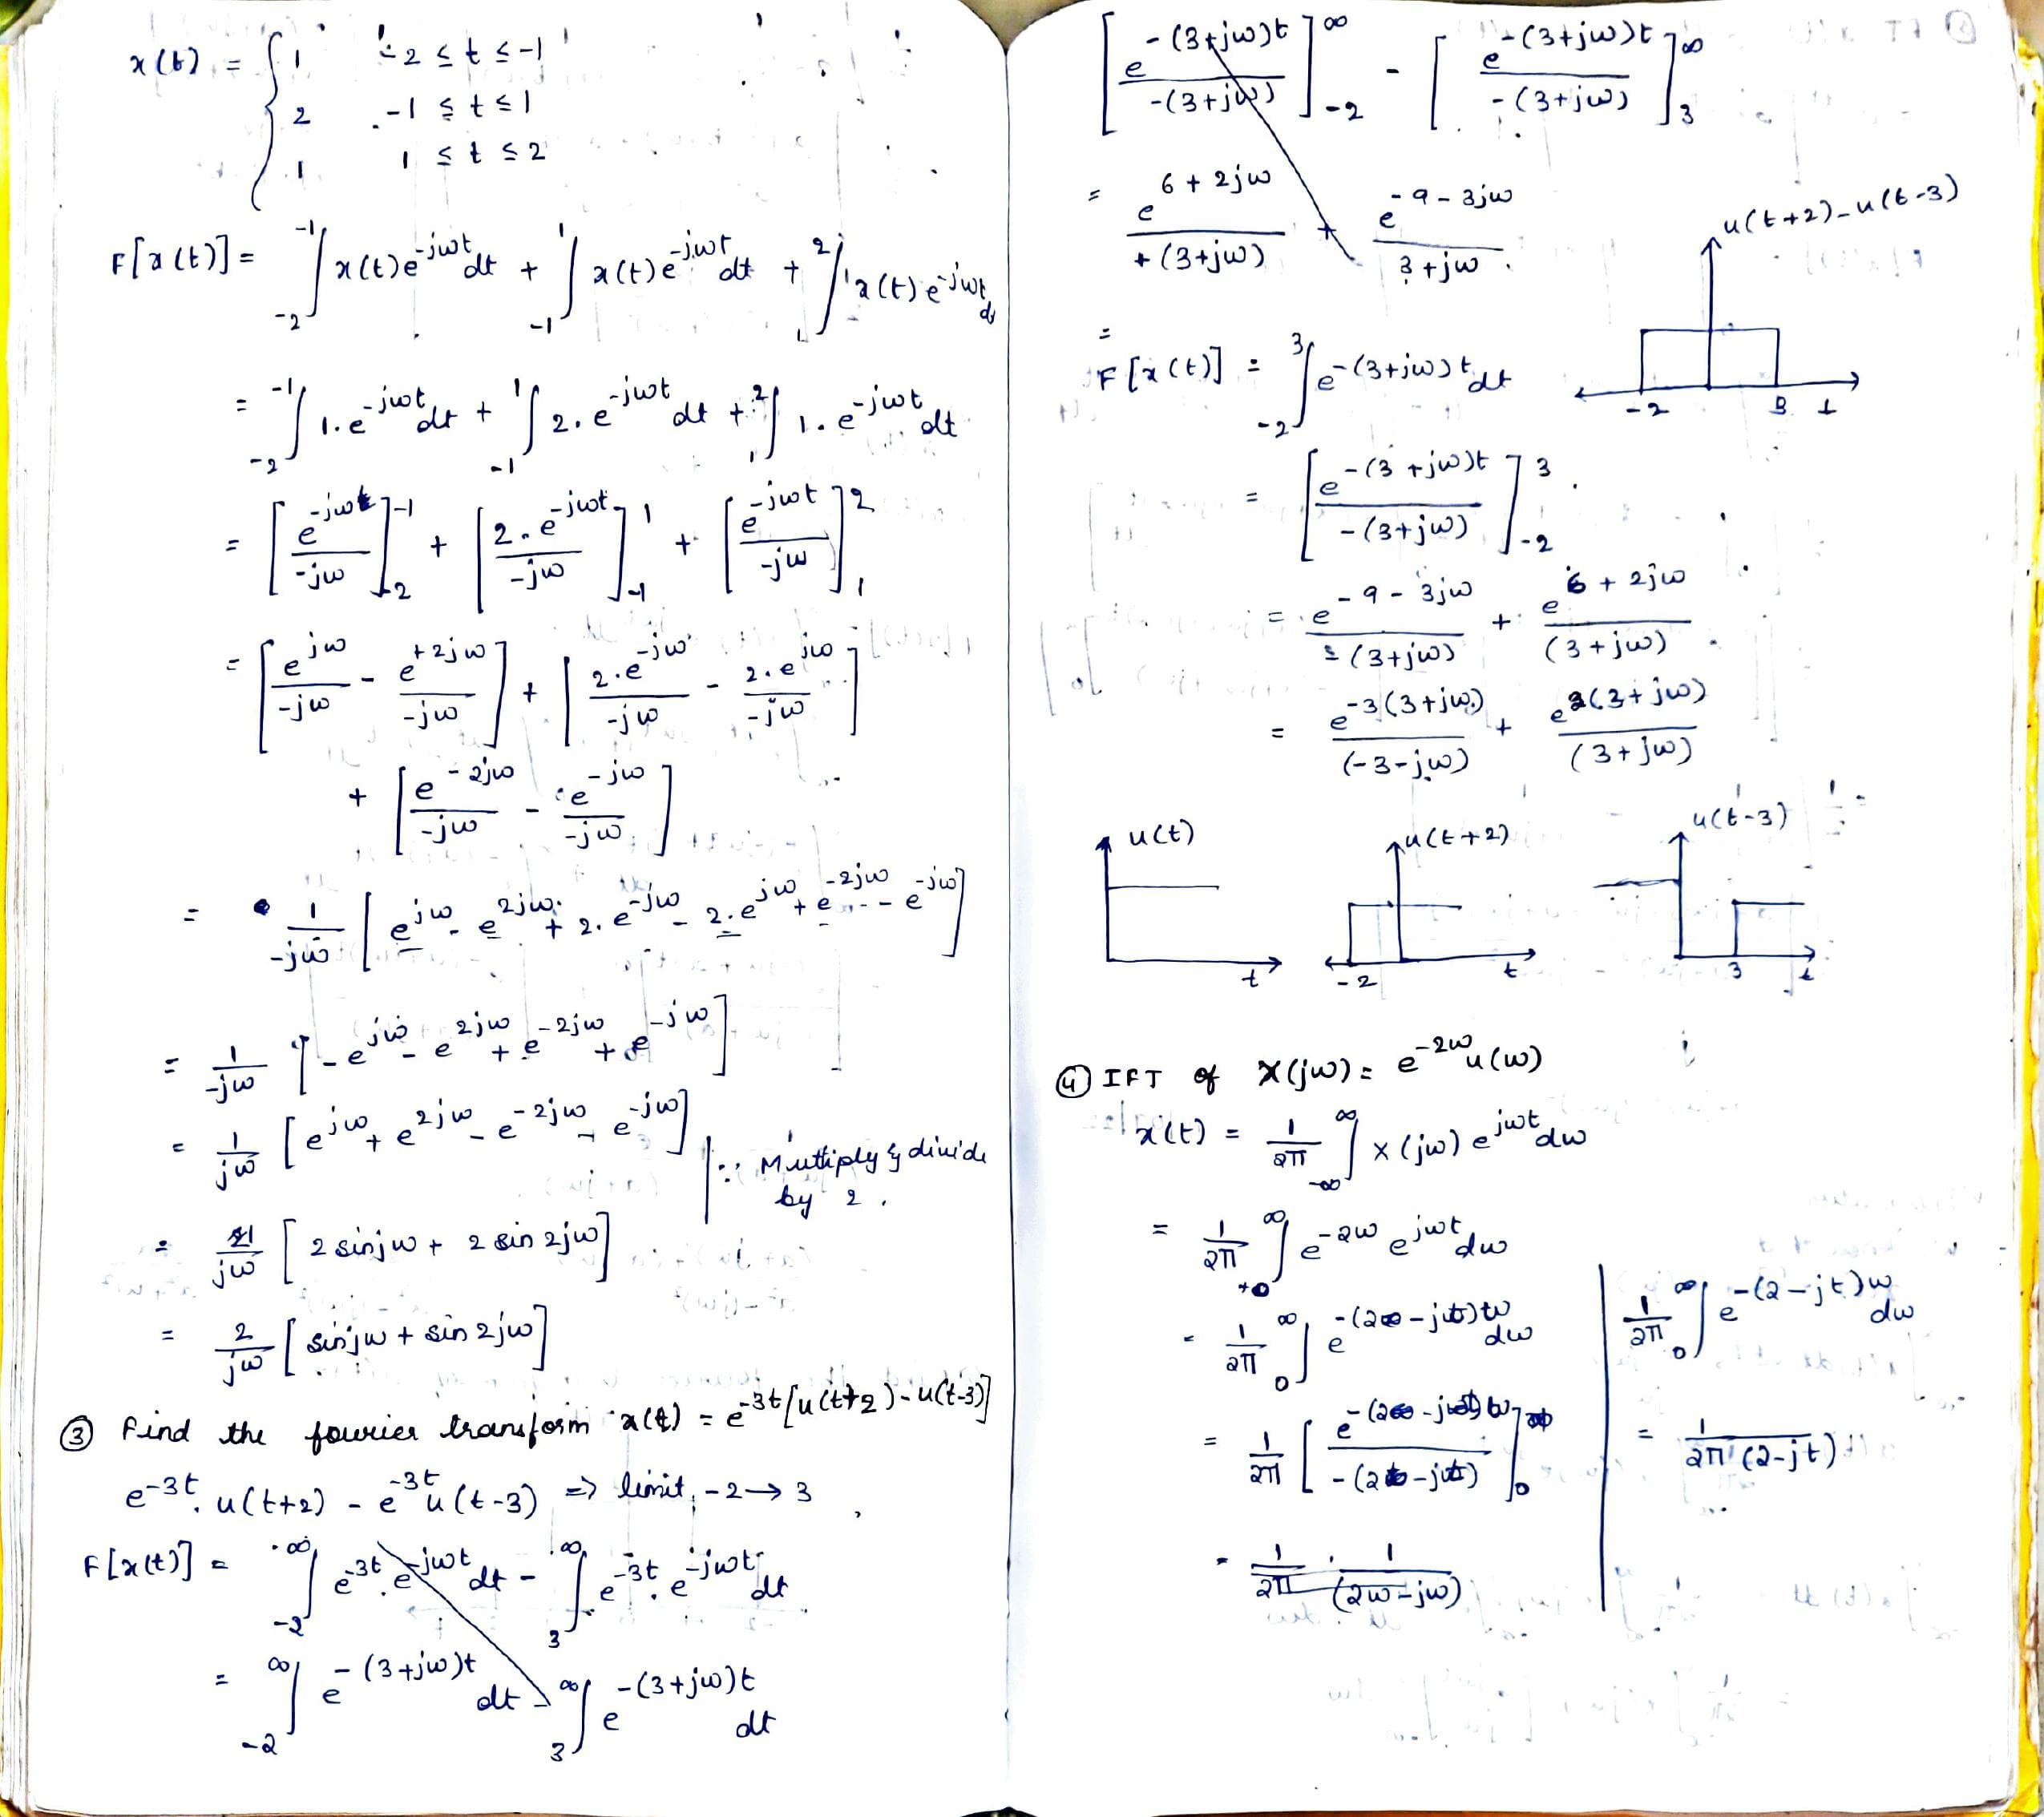 x(t) = { 1   -2 ≤ t ≤ -1
2   -1 ≤ t ≤ 1
1   1 ≤ t ≤ 2
F[x(t)] = ∫_{-2}^{-1} x(t) e^{-jωt} dt + ∫_{-1}^{1} x(t) e^{-jωt} dt + ∫_{1}^{2} x(t) e^{-jωt} d
= ∫_{-2}^{-1} 1. e^{-jωt} dt + ∫_{-1}^{1} 2. e^{-jωt} dt + ∫_{1}^{2} 1. e^{-jωt} dt
= [e^{-jωt}/-jω]_{-2}^{-1} + [2. e^{-jωt}/-jω]_{-1}^{1} + [e^{-jωt}/-jω]_{1}^{2}
= [e^{jω}/-jω - e^{+2jω}/-jω] + [2.e^{-jω}/-jω - 2.e^{jω}/-jω]
+ [e^{-2jω}/-jω - e^{-jω}/-jω]
= 1/-jω [e^{jω} - e^{2jω} + 2. e^{-jω} - 2. e^{jω} + e^{-2jω} - e^{-jω}]
= 1/-jω [-e^{jω} - e^{2jω} + e^{-2jω} + e^{-jω}]
= 1/jω [e^{jω} + e^{2jω} - e^{-2jω} - e^{-jω}]
∵ Multiply & divide
by 2.
= 1/jω [2 sinjω + 2 sin 2jω]
= 2/jω [sinjω + sin 2jω]
③ Find the fourier transform x(t) = e^{-3t}[u(t+2) - u(t-3)]
e^{-3t}. u(t+2) - e^{-3t} u(t-3) => limit, -2 → 3
F[x(t)] = ∫_{-2}^{∞} e^{-3t}. e^{-jωt} dt - ∫_{3}^{∞} e^{-3t}. e^{-jωt} dt
= ∫_{-2}^{∞} e^{-(3+jω)t} dt - ∫_{3}^{∞} e^{-(3+jω)t} dt
[e^{-(3+jω)t}/-(3+jω)]_{-2}^{∞} - [e^{-(3+jω)t}/-(3+jω)]_{3}^{∞}
= e^{6+2jω}/+(3+jω) + e^{-9-3jω}/3+jω.
u(t+2)-u(t-3)
-2 3 t
=
F[x(t)] = ∫_{-2}^{3} e^{-(3+jω)t} dt
= [e^{-(3+jω)t}/-(3+jω)]_{-2}^{3}
= e^{-9-3jω}/-(3+jω) + e^{6+2jω}/(3+jω)
= e^{-3(3+jω)}/(-3-jω) + e^{2(3+jω)}/(3+jω)
u(t) u(t+2) u(t-3)
t -2 t 3 t
④ IFT of X(jω) = e^{-2ω} u(ω)
x(t) = 1/2π ∫_{-∞}^{∞} x(jω) e^{jωt} dω
= 1/2π ∫_{0}^{∞} e^{-2ω} e^{jωt} dω
= 1/2π ∫_{0}^{∞} e^{-(2-jt)ω} dω
= 1/2π [e^{-(2-jt)ω}/-(2-jt)]_{0}^{∞}
= 1/2π . 1/(2ω-jω)
1/2π ∫_{0}^{∞} e^{-(2-jt)ω} dω
= 1/2π(2-jt)